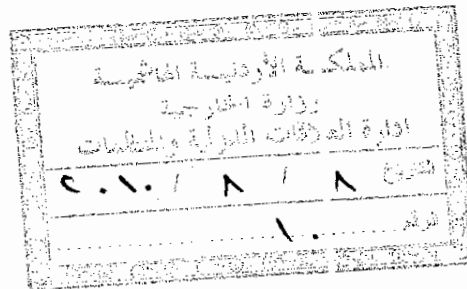 المملكة الأردنية الهاشمية
وزارة الخارجية
ادارة العلاقات الدولية والمنظمات
التاريخ ٨ / ٨ / ٢٠١٠
الرقم ١٠